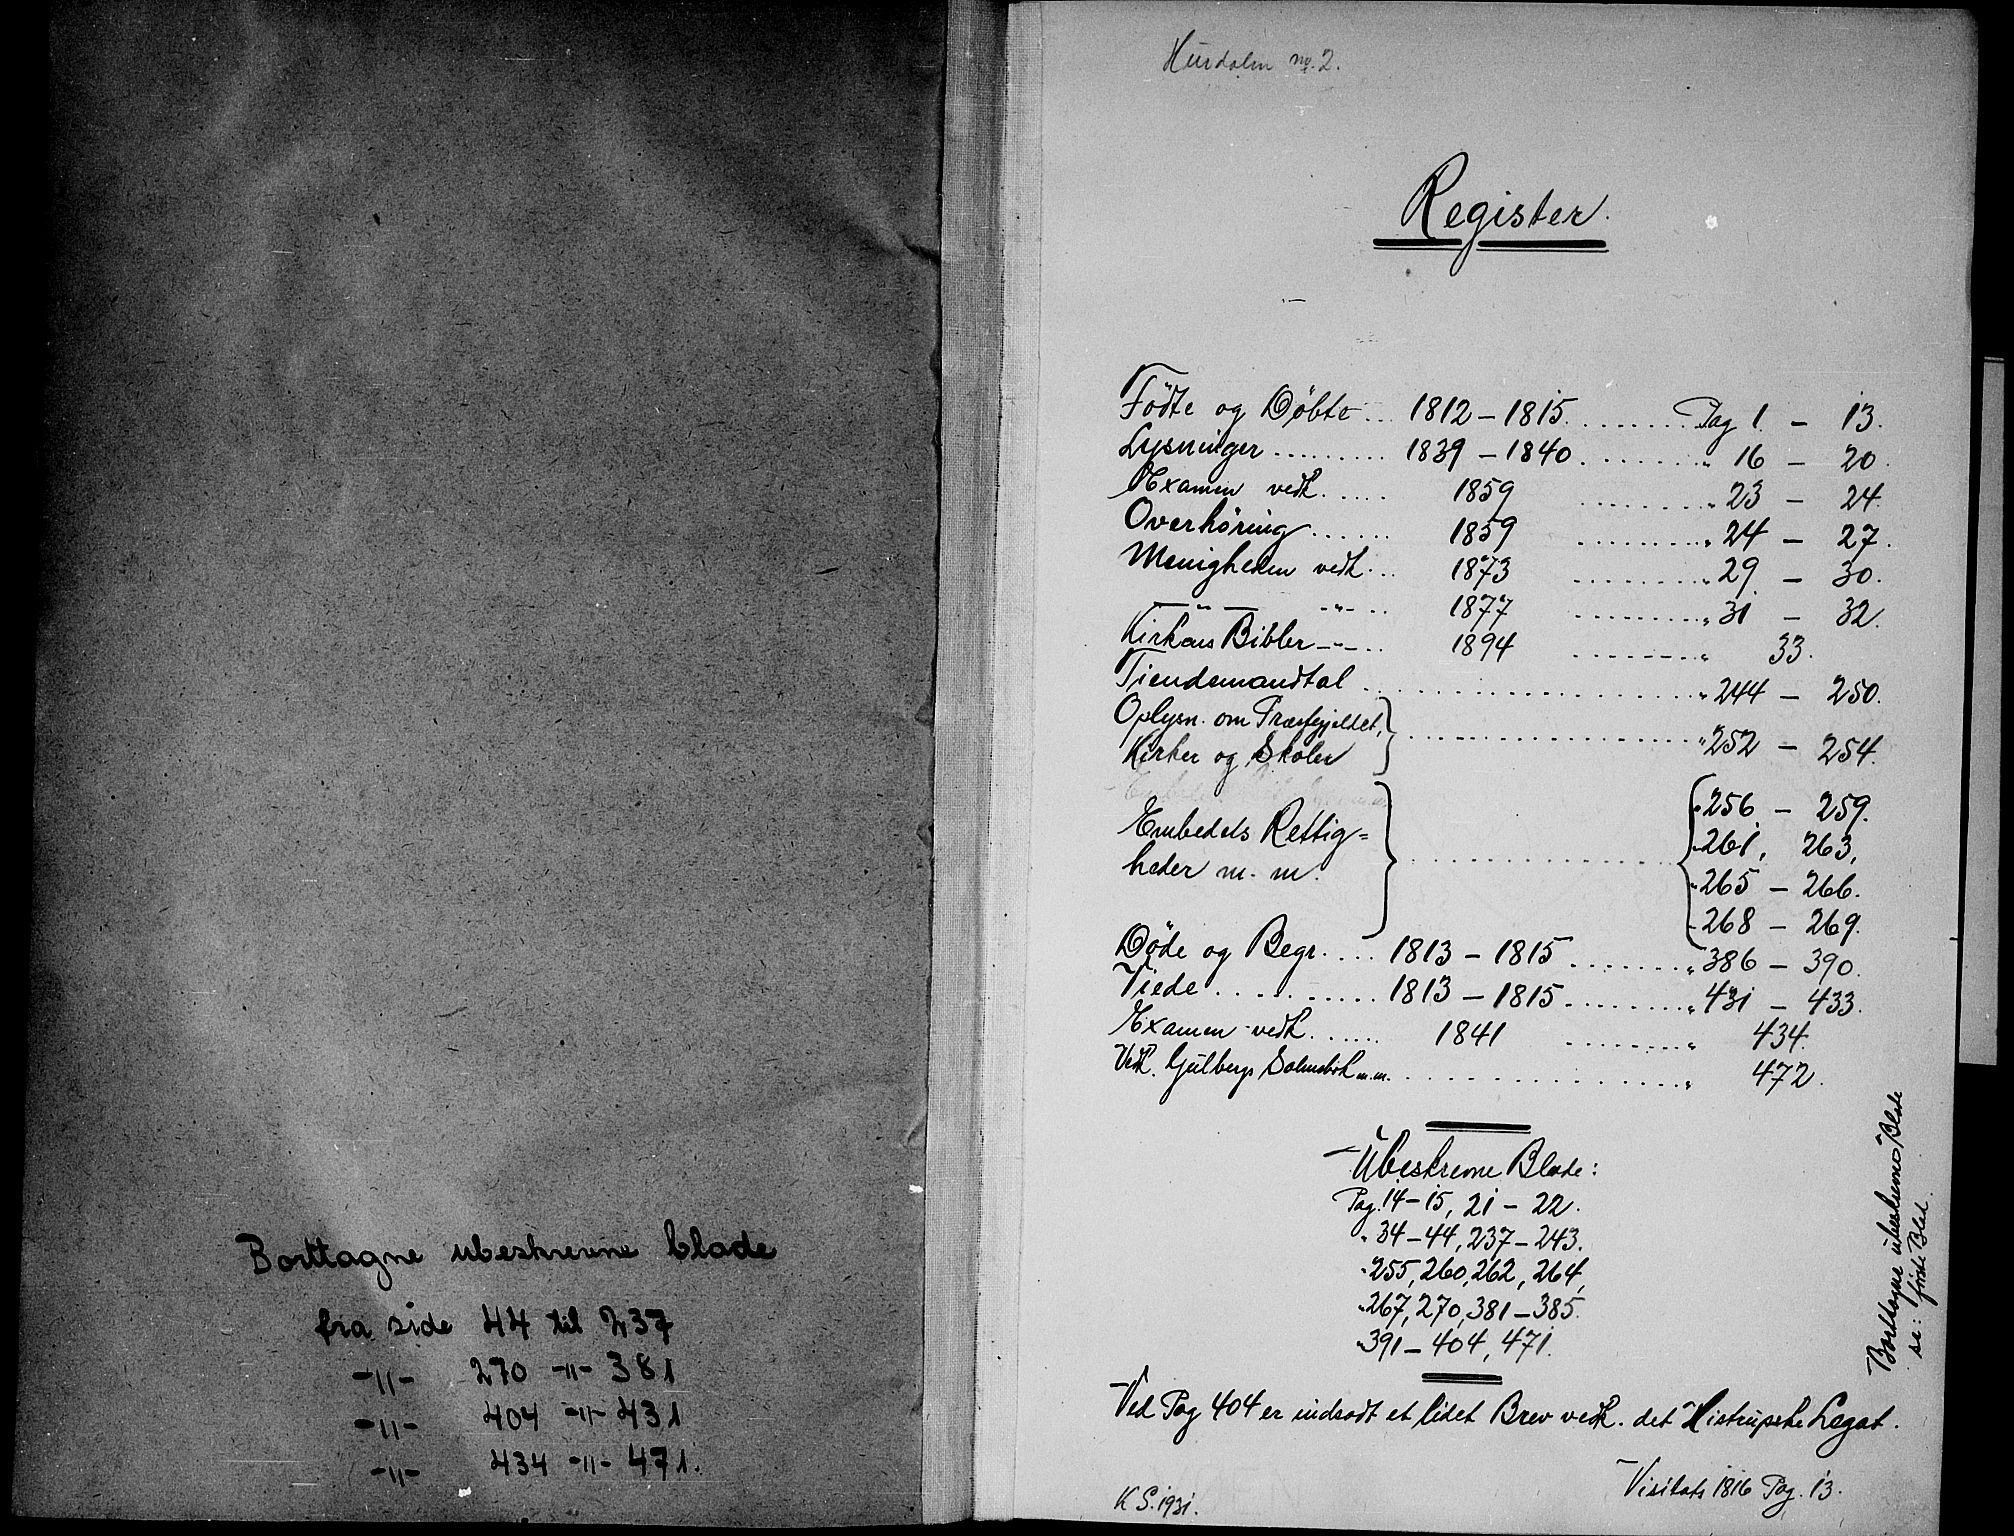 Borttagne ubeskrevne blade
fra side 44 til 237
-"- 270 -"- 381
-"- 404 -"- 431
-"- 434 -"- 471.
Hurdalen no. 2.
Register.
Födte og Döbte ... 1812 - 1815 ........ Pag 1. - 13.
Lysninger ......... 1839 - 1840 ........ " 16 - 20.
Examen vedk. ..... 1859 ........ " 23 - 24.
Overhöring ...... 1859 ......... " 24 - 27.
Menigheden vedk. .. 1873 ......... " 29 - 30.
— " — -"- .. 1877 ......... " 31 - 32.
Kirkens Bibler -"- .. 1894 ......... " 33.
Tiendemandtal ......... " 244 - 250.
Oplysn. om Præstegjeldet,
Kirker og Skoler } ......... " 252 - 254.
Embedets Rettig=
heder m. m. } ......... { " 256 - 259.
" 261, 263,
" 265 - 266.
" 268 - 269.
Döde og Begr. .... 1813 - 1815 ........ " 386 - 390.
Viede ........... 1813 - 1815 ........ " 431 - 433.
Examen vedk. ...... 1841 ......... " 434.
Vedk. Gulbergs Salmebok m.m. ......... " 472.
Ubeskrevne Blade:
Pag. 14 - 15, 21 - 22.
" 34 - 44, 237 - 243.
" 255, 260, 262, 264,
" 267, 270, 381 - 385.
" 391 - 404, 471.
Ved Pag 404 er indsadt et lidet Brev vedk. det Histrupske Legat.
Visitats 1816 Pag. 13.
K S. 1931.
Borttagne ubeskrevne Blade
se: første Blad.